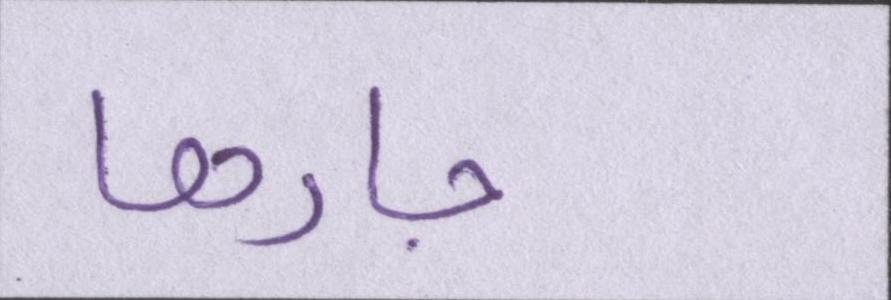 جارها